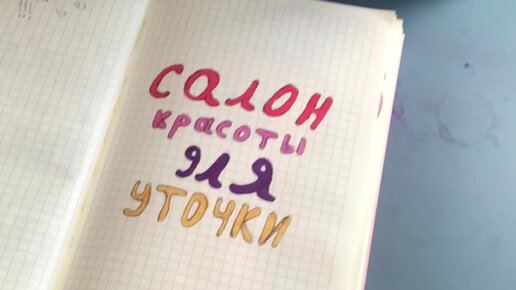 салон
красоты
для
уточки